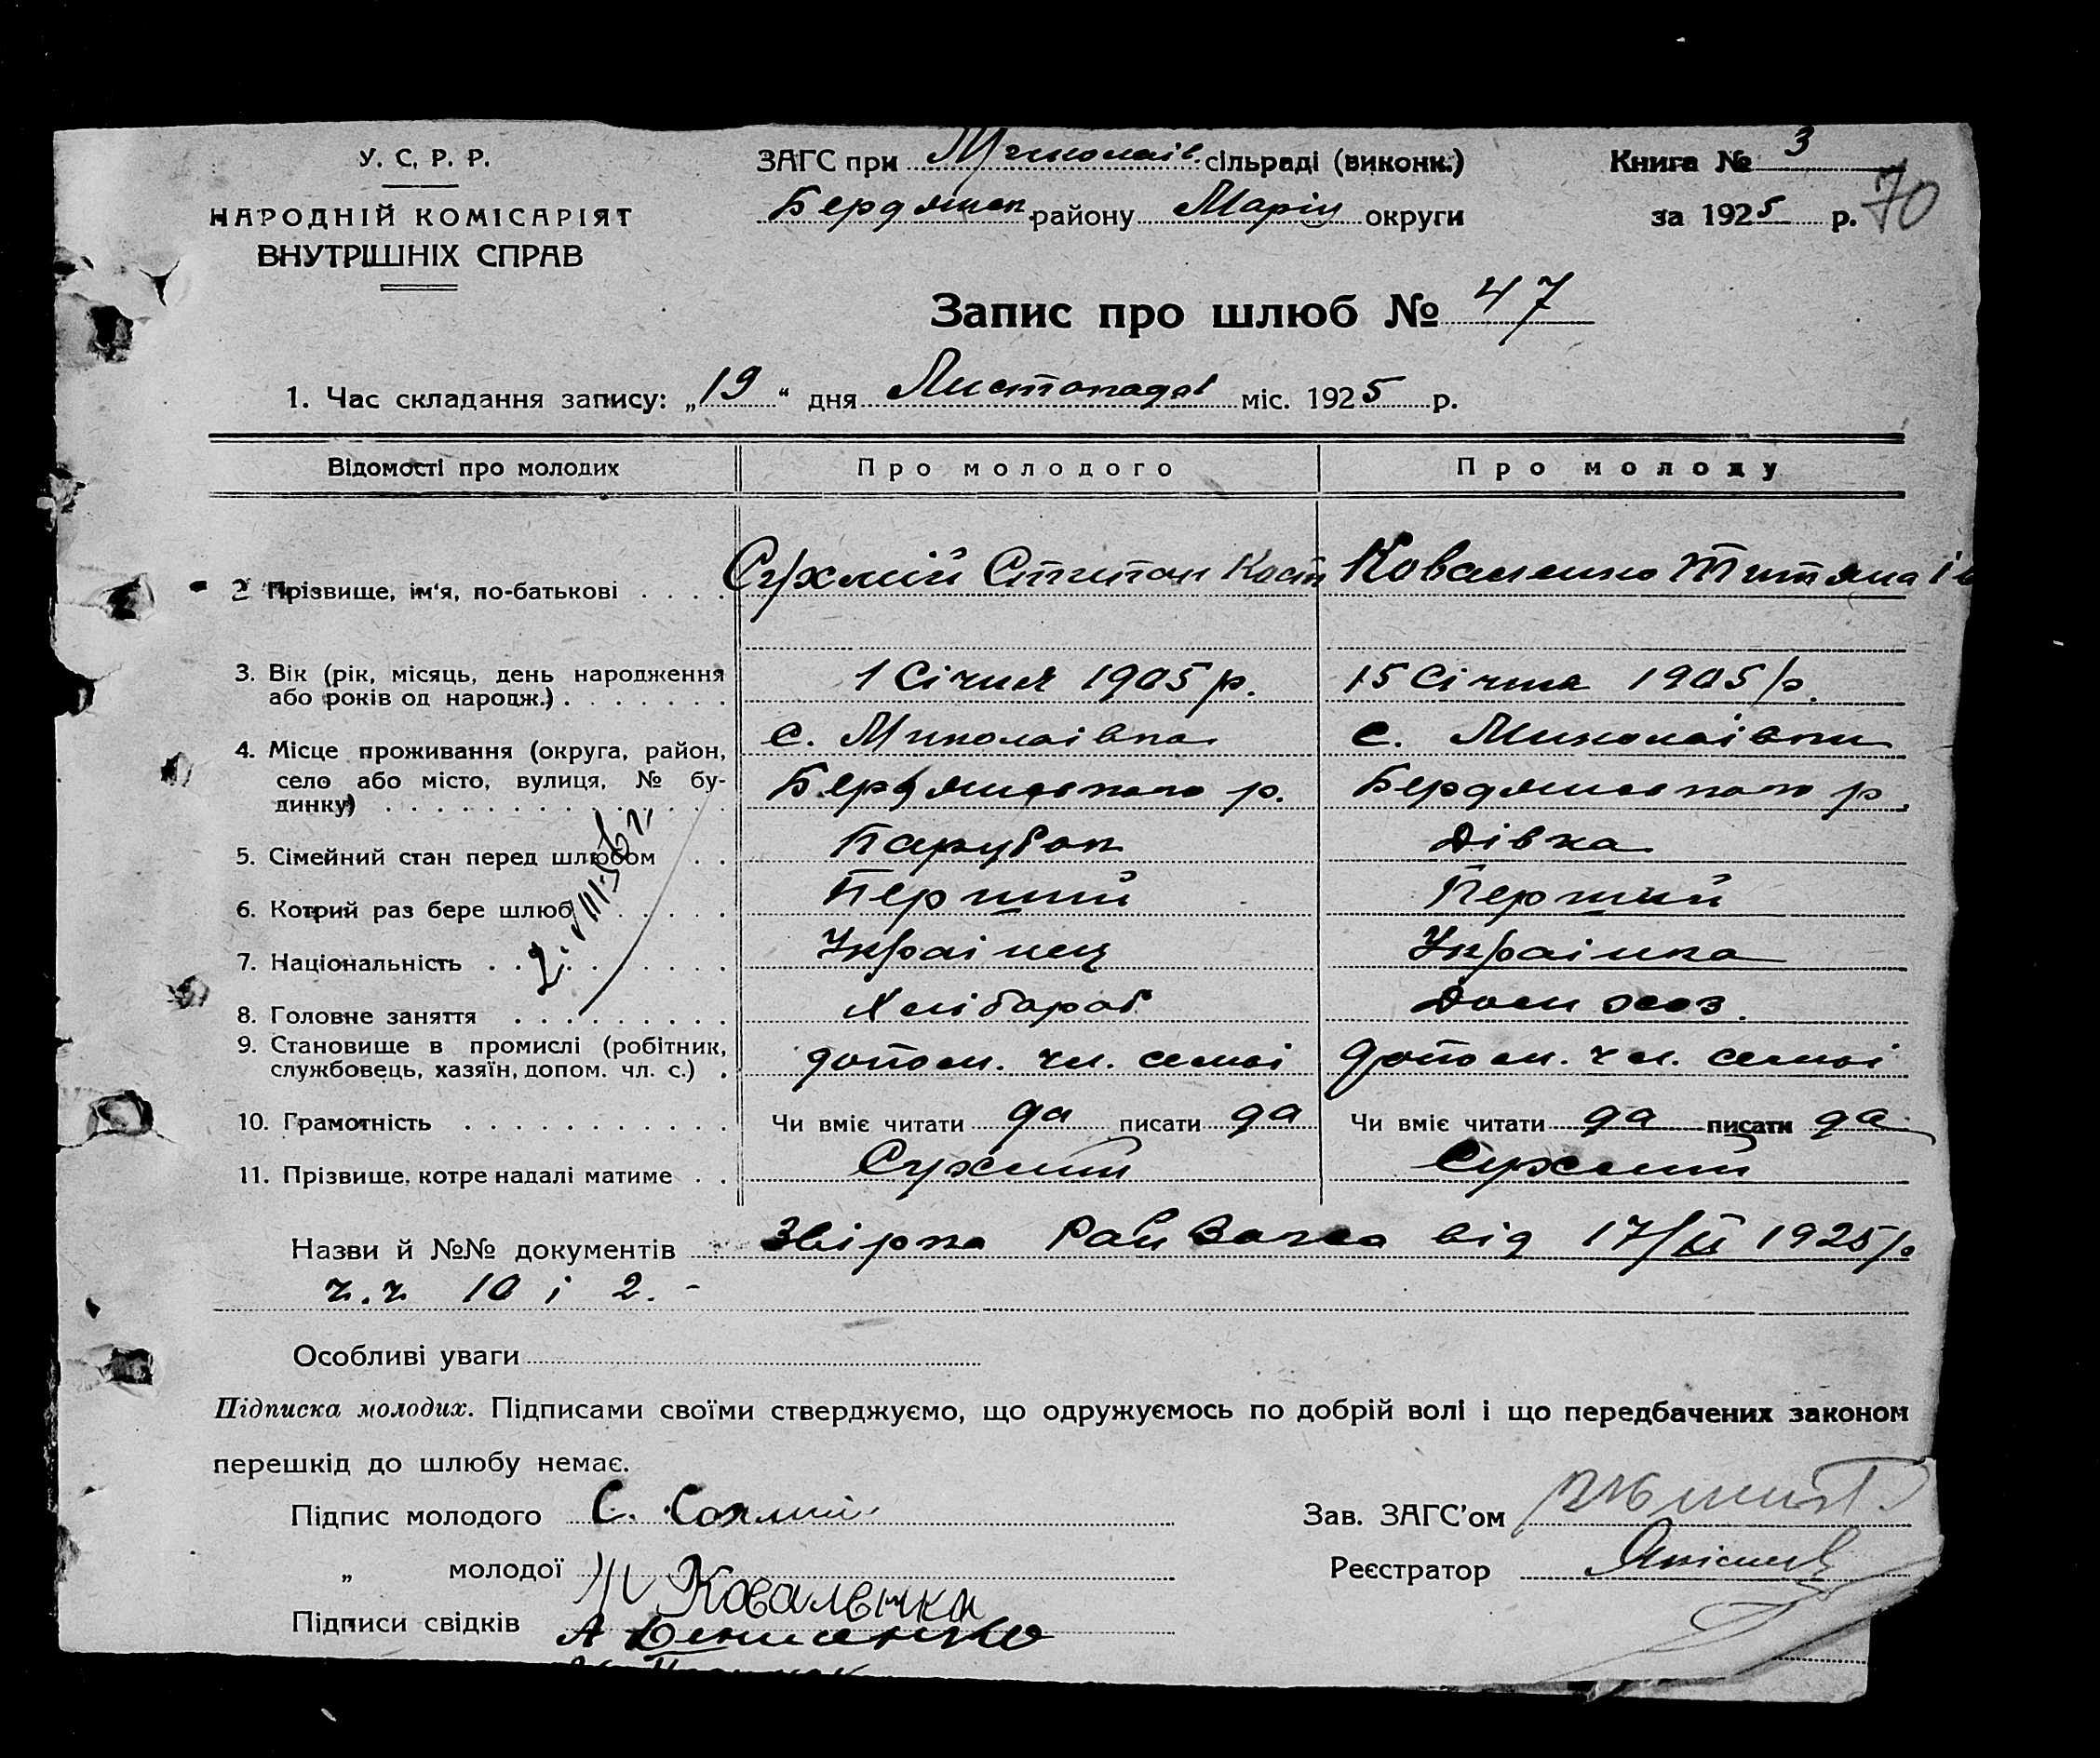 У. С. Р. Р.
НАРОДНІЙ КОМІСАРІЯТ
ВНУТРІШНІХ СПРАВ
ЗАГС при Миколаїв. сільраді (виконк.)
Бердянск. району Маріц округи
Книга № 3
за 1925 р.
70
Запис про шлюб № 47
1. Час складання запису: „19“ дня Листопада міс. 1925 р.
Відомості про молодих Про молодого Про молоду
2 Прізвище, ім'я, по-батькові . . . . Сухмій Степан Кост Коваленко Титяна Ів
3. Вік (рік, місяць, день народження
або років од народж.) . . . . . . . 1 Січня 1905 р. 15 Січня 1905 р.
4. Місце проживання (округа, район,
село або місто, вулиця, № бу-
динку) . . . . . . . . . . . . . .
с. Миколаівка с. Миколаівки
Бердянського р. Бердянського р.
5. Сімейний стан перед шлюбом . . Парубок Дівка
6. Котрий раз бере шлюб . . . . . Перший Перший
7. Національність . . . . . . . . . Украінец Украінка
8. Головне заняття . . . . . . . . . Хлібороб Дом хоз.
9. Становище в промислі (робітник,
службовець, хазяїн, допом. чл. с.) . допом. чл. семьі допом. чл. семьі
10. Грамотність . . . . . . . . . . . Чи вміє читати да писати да Чи вміє читати да писати да
11. Прізвище, котре надалі матиме . . Сухмий Сухмий
Назви й №№ документів Звірка від 17/ІХ 1925 р
ч.ч 10 і 2. -
Особливі уваги
Підписка молодих. Підписами своїми стверджуємо, що одружуємось по добрій волі і що передбачених законом
перешкід до шлюбу немає.
Підпис молодого С. Сохмий
Зав. ЗАГС'ом
„ молодої Т Ковальенки
Реєстратор
Підписи свідків А Денисенко